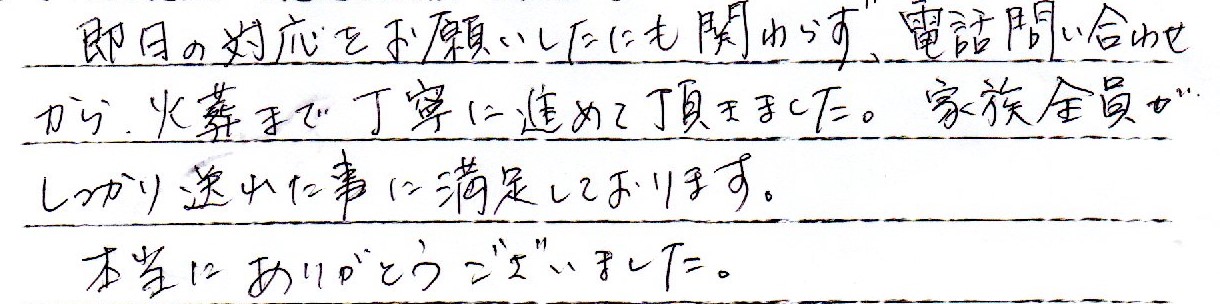 即日の対応をお願いしたにも関わらず、電話問い合わせ
から、火葬まで丁寧に進めて頂きました。家族全員が
しっかり送れた事に満足しております。
本当にありがとうございました。